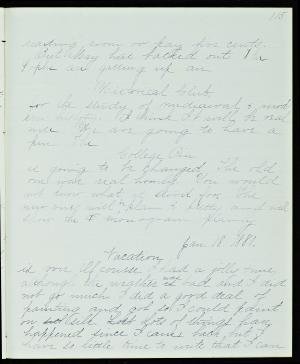 115
reading room or pay five cents.
But May has backed out. The
are getting up an
Historical Club
for the study of mediaeval & mod
ern history. I think I will be real
nice. We are going to have a
pin. The
College Pin
is going to be changed. The old
one was real homely. You would
not know what it stood for. The
new one will
show the monogram
Jan. 18. 1881.
Vacation
is over. Of course I had a jolly time
although the weather was bad and I did
not go much. I did a good deal of
painting and got so I could paint
on silk. Lots of things have
happened since I came back but I
have so little time to write that I can